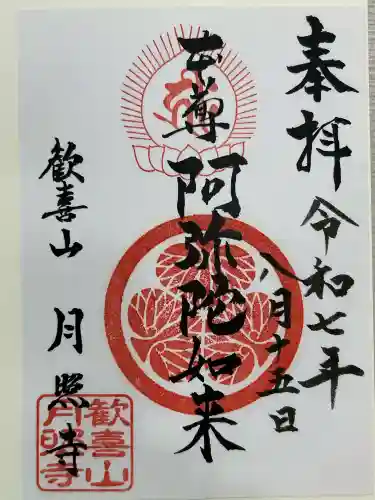 奉拝
令和七年
八月十五日
本尊
阿弥陀如来
歓喜山
月照寺
歓喜山
月照寺